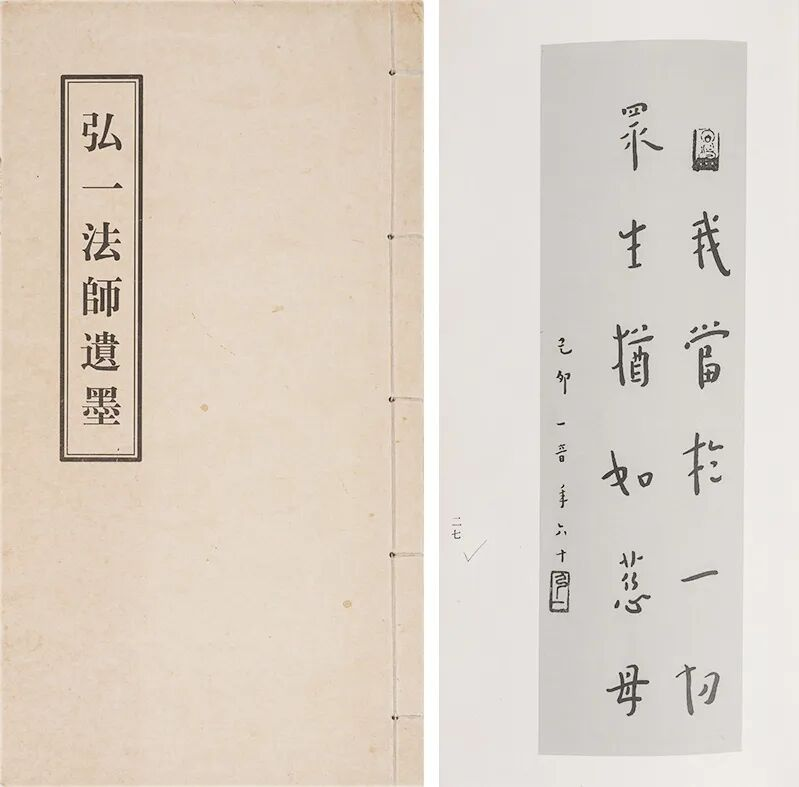 弘一法師遺墨
我當於一切
眾生猶如慈母
己卯一音年六十
二七